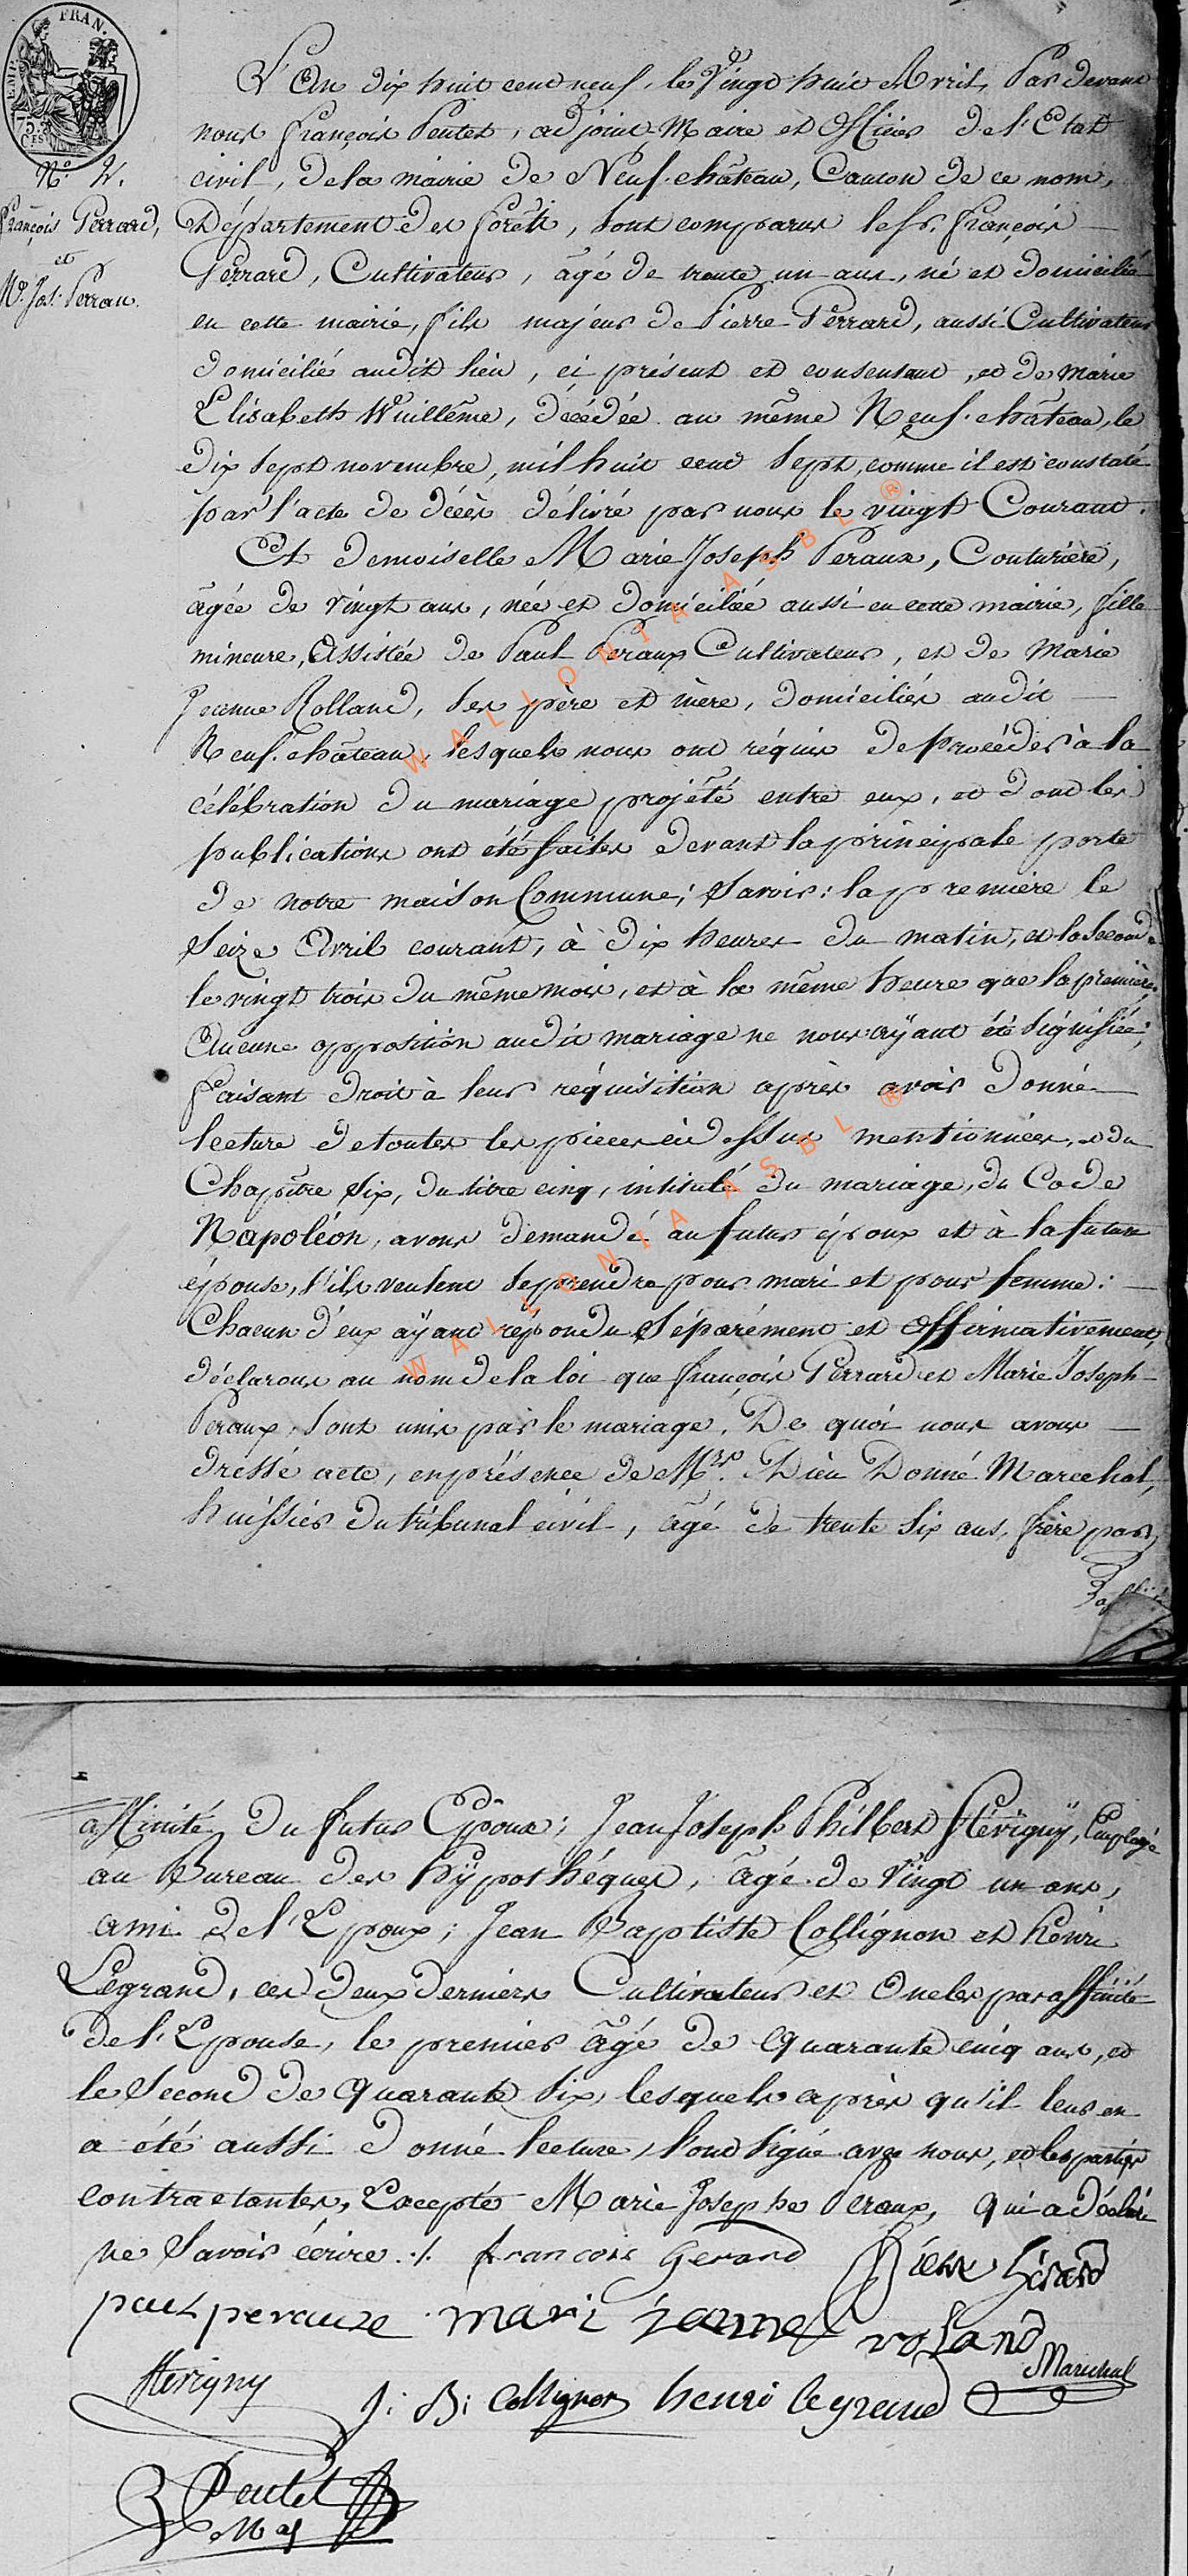 FRAN.
EMP.
75 CES
N.º IV.
François Gerrard,
et
M.e Jos. Perrau.
L'An dix huit cent neuf, le Vingt huit Avril, Par devant
nous François Poutet, adjoint-Maire et Officier de l'Etat
civil, de la mairie de Neuf-château, Canton de ce nom,
Département des forêts, sont comparus le Sr. François
Gerrard, Cultivateur, âgé de trente un ans, né et domicilié
en cette mairie, fils majeur de Pierre Gerrard, aussi Cultivateur
domicilié audit lieu, ci présent et consentant, et de Marie
Elisabeth Wuillême, décédée au même Neuf-château, le
dix sept novembre, mil huit cent sept, comme il est constaté
par l'acte de décès délivré par nous le vingt Courant.
Et demoiselle Marie Joseph Peraux, Couturière,
âgée de vingt ans, née et domiciliée aussi en cette mairie, fille
mineure, Assistée de Paul Peraux Cultivateur, et de Marie
Jeanne Rolland, ses père et mère, domiciliés audit
Neuf-château, lesquels nous ont réquis de procéder à la
célébration du mariage projété entre eux, et dont les
publications ont été faites devant la principale porte
de notre maison Commune; Savoir: la première le
Seize Avril courant, à dix heures du matin, et la Seconde
le vingt trois du même mois, et à la même heure que la première.
Aucune opposition audit mariage ne nous aÿant été signifiée;
faisant droit à leur réquisition après avoir donné
lecture de toutes les pieces ci dessus mentionnées, et du
Chapitre Six, du titre cinq, intitulé du mariage, du Code
Napoléon, avons demandé au futur époux et à la future
épouse, s'ils veulent se prendre pour mari et pour femme:
Chacun d'eux aÿant répondu Séparément et Affirmativement,
déclarons au nom de la loi que François Gerrard et Marie Joseph
Peraux, sont unis par le mariage. De quoi nous avons
dressé acte, en présence de Mrs. Dieu Donné Marechal,
huissier du tribunal civil, âgé de trente Six ans, frère par
WALLONIA ASBL ®
WALLONIA ASBL ®
affinité du futur Epoux; Jean Joseph Philbert Hévigny, Employé
au Bureau des hÿpothéques, âgé de Vingt un ans,
ami de l'Epoux; Jean Baptiste Collignon et henri
Legrand, ces deux derniers Cultivateurs et Oncles par affinité
de l'Epouse, le premier âgé de Quarante cinq ans, et
le Second de Quarante Six, lesquels après qu'il leur en
a été aussi donné lecture, Sont signé avec nous, et les parties
contractantes, Excepté Marie Josephe Peraux, qui a déclaré
ne Savoir écrire ./. francois Gerard Pierre Gérard
paul peraux mari jeanne roland
Hevigny J: B: Collignon henri legrand Marechal
Poutet